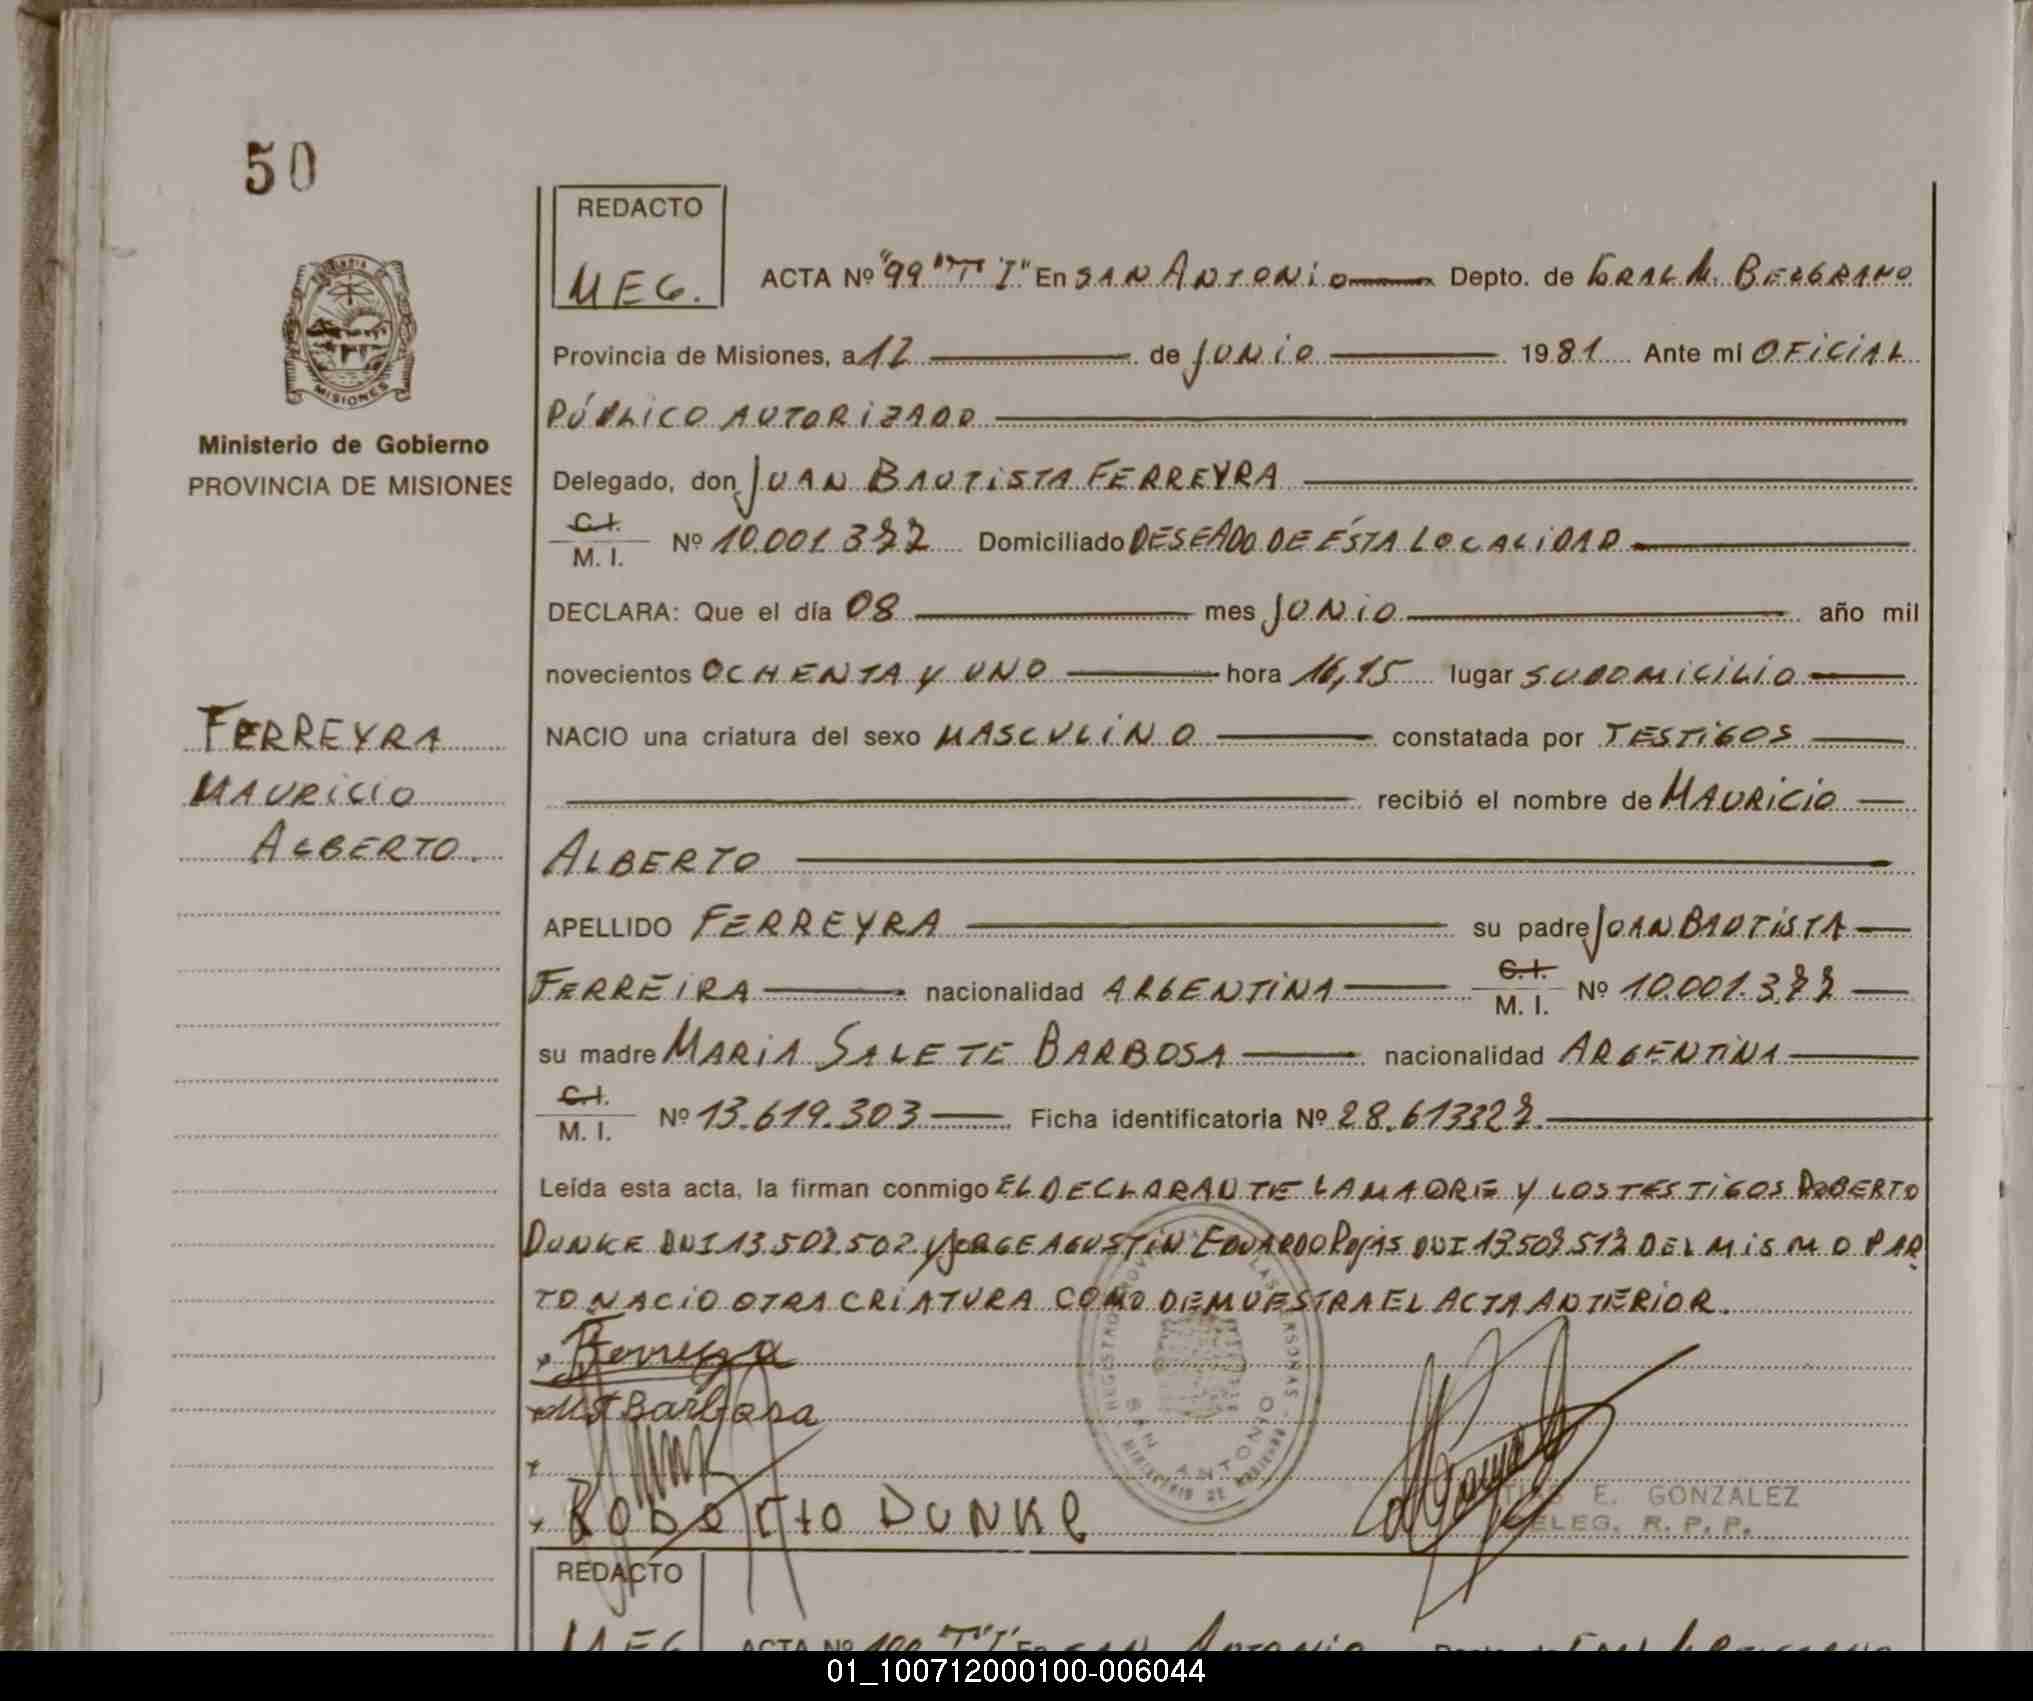 50
REDACTO
MEG.
ACTA Nº "99" "T I" En SAN ANTONIO Depto. de GRAL M. BELGRANO
Provincia de Misiones, a 12 de JUNIO 1981 Ante mi OFICIAL
PÚBLICO AUTORIZADO
MISIONES
Ministerio de Gobierno
PROVINCIA DE MISIONES
Delegado, don JUAN BAUTISTA FERREYRA
C. I.
M. I. Nº 10.001.377 Domiciliado DESEADO DE ÉSTA LOCALIDAD
DECLARA: Que el día 08 mes JUNIO año mil
novecientos OCHENTA Y UNO hora 16,15 lugar SU DOMICILIO
FERREYRA
MAURICIO
ALBERTO.
NACIO una criatura del sexo MASCULINO constatada por TESTIGOS
recibió el nombre de MAURICIO
ALBERTO
APELLIDO FERREYRA su padre JUAN BAUTISTA
FERREIRA nacionalidad ARGENTINA C. I. M. I. Nº 10.001.377
su madre MARIA SALETE BARBOSA nacionalidad ARGENTINA
C. I.
M. I. Nº 13.619.303 Ficha identificatoria Nº 28.613327.
Leída esta acta, la firman conmigo EL DECLARANTE LA MADRE Y LOS TESTIGOS ROBERTO
DUNKE DNI 13.507.502 y JORGE AGUSTIN EDUARDO Rojas DNI 13.507.517 DEL MISMO PAR
TO NACIO OTRA CRIATURA COMO DEMUESTRA EL ACTA ANTERIOR.
Ferreyra
MS Barbosa
SAN ANTONIO
Roberto DUNKE
E. GONZALEZ
DELEG. R. P. P.
REDACTO
MEG
ACTA Nº 100 "T I" En SAN ANTONIO
01_100712000100-006044